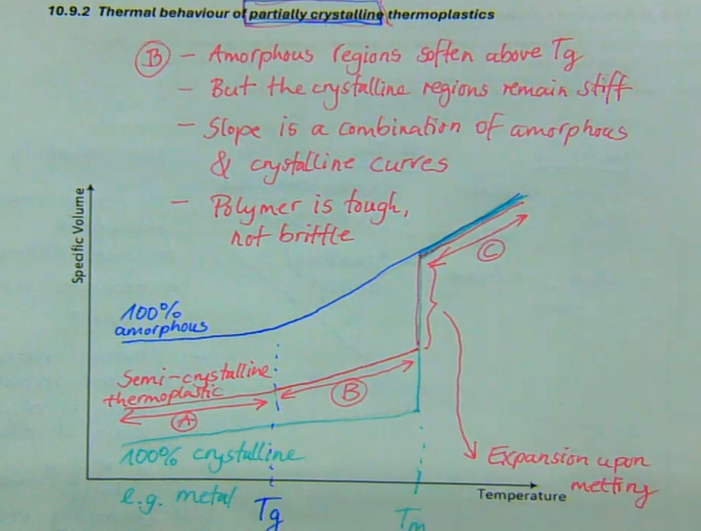 10.9.2 Thermal behaviour of partially crystalline thermoplastics
B - Amorphous regions soften above Tg
- But the crystalline regions remain stiff
- Slope is a combination of amorphous
& crystalline curves
- Polymer is tough,
not brittle
Specific Volume
C
100%
amorphous
Semi-crystalline
thermoplastic
A
B
100% crystalline
e.g. metal
Tg
Tm
Temperature
Expansion upon
melting